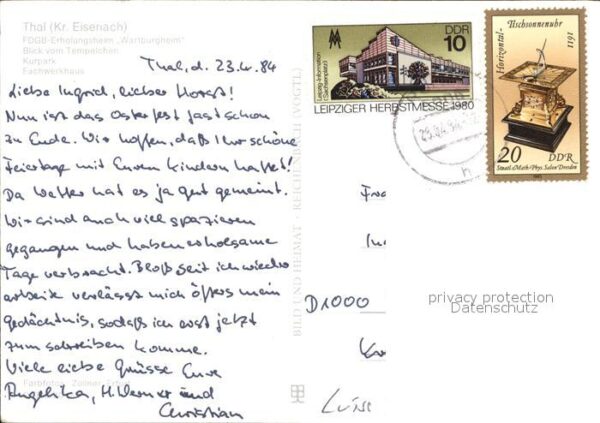 Thal (Kr. Eisenach)
FDGB-Erholungsheim „Wartburgheim"
Blick vom Tempelchen
Kurpark
Fachwerkhaus
Thal, d. 23.4.84
Liebe Ingrid, lieber Horst!
Nun ist das Osterfest fast schon
zu Ende. Wir hoffen, daß Ihr schöne
Feiertage mit Euren Kindern hattet!
Das Wetter hat es ja gut gemeint.
Wir sind auch viel spazieren
gegangen und haben erholsame
Tage verbracht. Bloß seit ich wieder
arbeite verlässt mich öfters mein
Gedächtnis, sodaß ich erst jetzt
zum schreiben komme.
Viele liebe Grüsse Eure
Angelika, H. Werner und
Christian
Farbfotos: Zollner, Erfurt
BILD UND HEIMAT · REICHENBACH (VOGTL)
DDR
10
Leipzig-Information
(Sachsenplatz)
LEIPZIGER HERBSTMESSE 1980
Horizontal-
Tischsonnenuhr
1611
20
DDR
Staatl. Math.-Phys. Salon Dresden
1983
Fra
D1000
privacy protection
Datenschutz